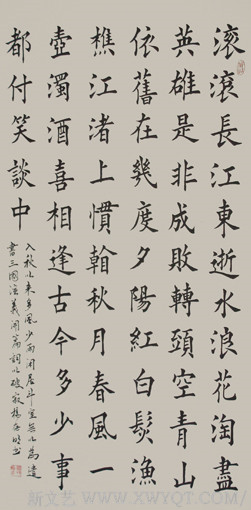 滚滾長江東逝水浪花淘盡
英雄是非成敗轉頭空青山
依舊在幾度夕陽紅白髮漁
樵江渚上慣翰秋月春風一
壺濁酒喜相逢古今多少事
都付笑談中
入秋以來多風少雨閒居斗室無以為遣
書三國演義開篇詞以破寂楊書
新文艺 - WWW.XWYQT.COM